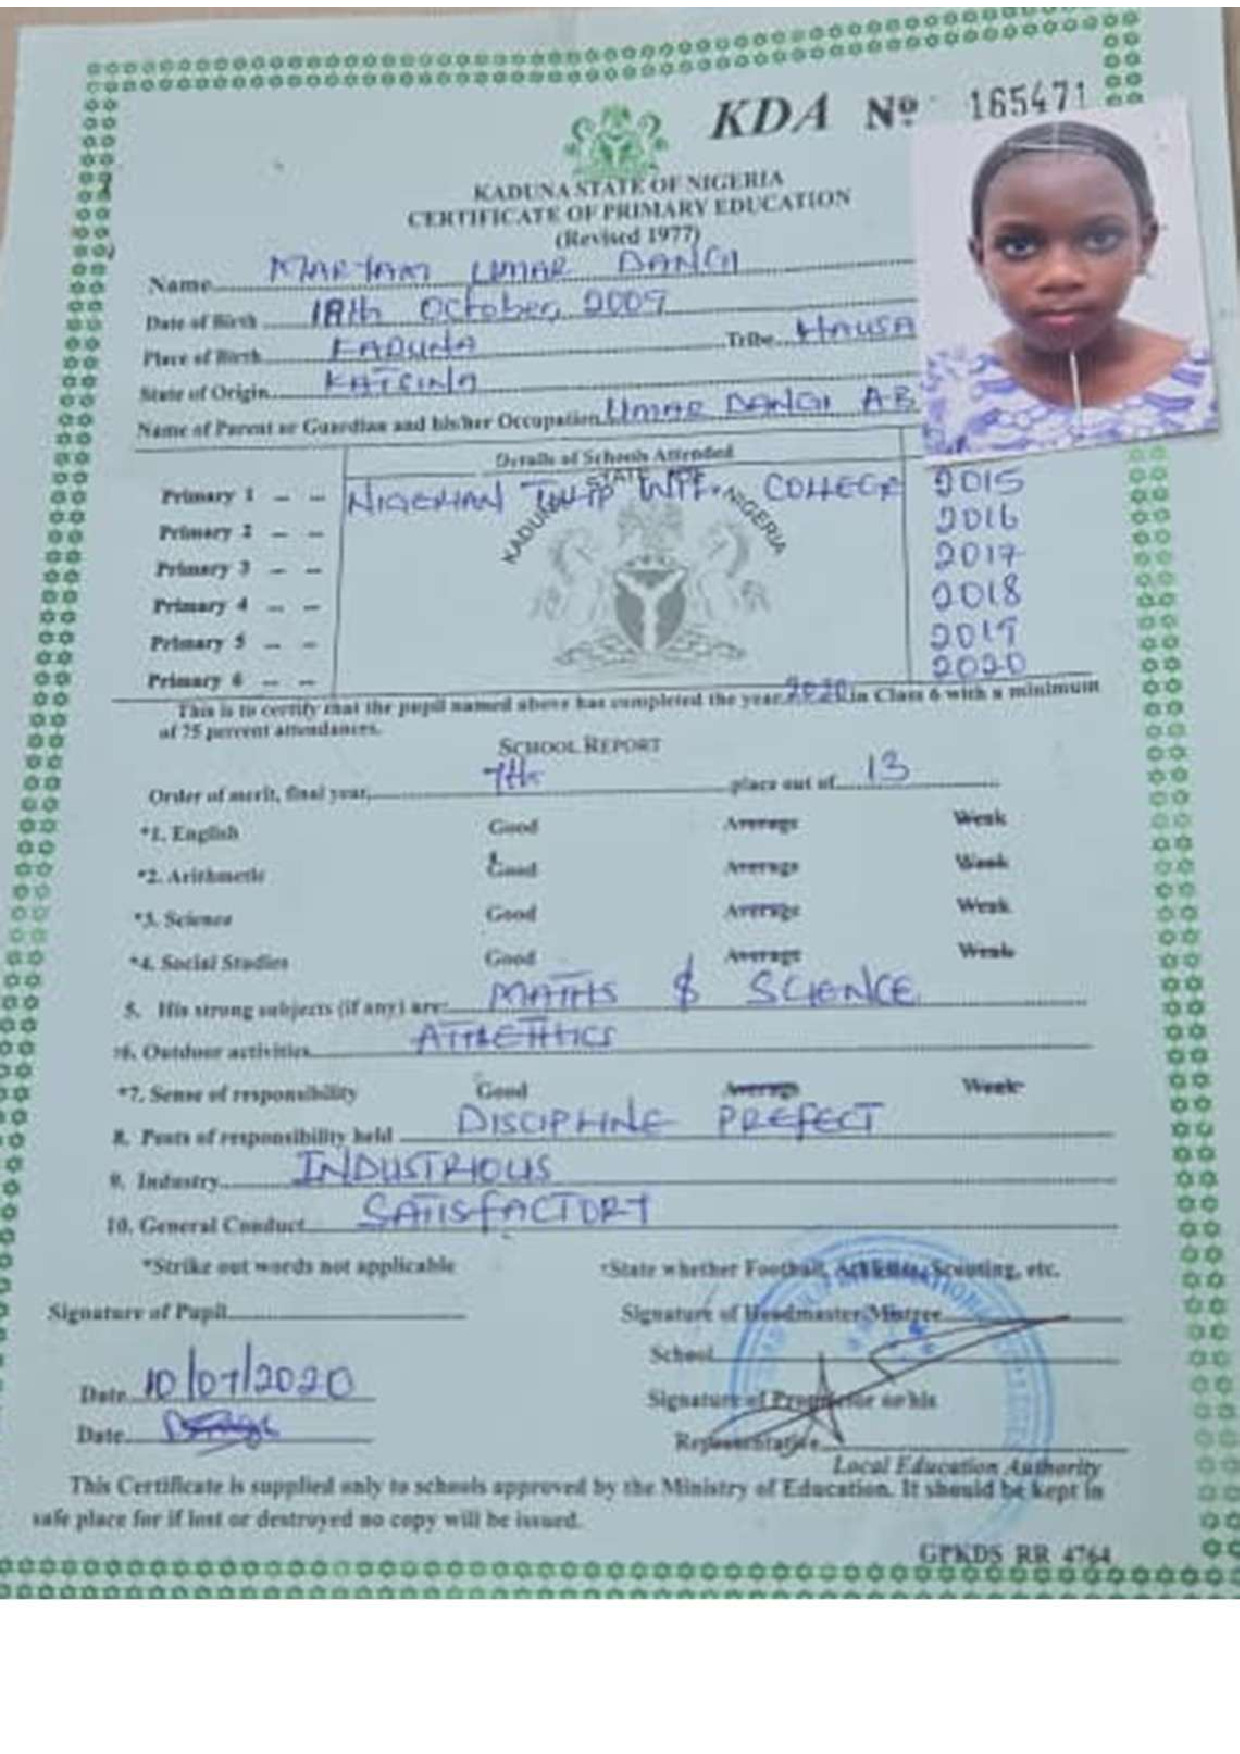 KDA Nº 165471
KADUNA STATE OF NIGERIA
CERTIFICATE OF PRIMARY EDUCATION
(Revised 1977)
Name MARYAM UMAR DANGI
Date of Birth 18th October, 2009
Place of Birth KADUNA Tribe HAUSA
State of Origin KATSINA
Name of Parent or Guardian and his/her Occupation UMAR DANGI AB
Details of Schools Attended
Primary 1 – – NIGERIAN TULIP INT. COLLEGE 2015
KADUNA STATE NIGERIA
Primary 2 – – 2016
Primary 3 – – 2017
Primary 4 – – 2018
Primary 5 – – 2019
Primary 6 – – 2020
This is to certify that the pupil named above has completed the year 2020 in Class 6 with a minimum
of 75 percent attendances.
SCHOOL REPORT
Order of merit, final year, 7th place out of 13
*1. English Good Average Weak
*2. Arithmetic Good Average Weak
*3. Science Good Average Weak
*4. Social Studies Good Average Weak
5. His strong subjects (if any) are: MATHS & SCIENCE
6. Outdoor activities ATHLETHICS
*7. Sense of responsibility Good Average Weak
8. Posts of responsibility held DISCIPLINE PREFECT
9. Industry INDUSTRIOUS
10. General Conduct SATISFACTORY
*Strike out words not applicable +State whether Football, Athletics, Scouting, etc.
Signature of Pupil Signature of Headmaster/Mistree
School
Date 10/07/2020 Signature of Proprietor or his
Date Representative
Local Education Authority
This Certificate is supplied only to schools approved by the Ministry of Education. It should be kept in
safe place for if lost or destroyed no copy will be issued.
GPKDS RR 4764